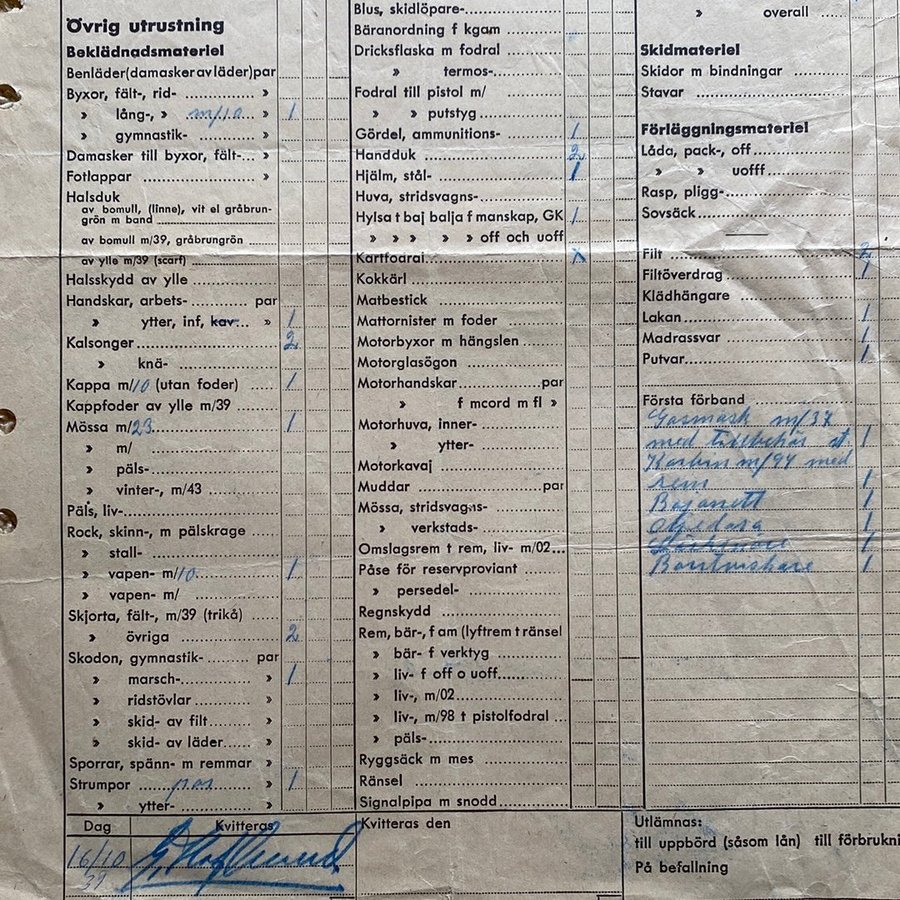 Övrig utrustning
Beklädnadsmateriel
Benläder(damasker av läder)par
Byxor, fält-, rid- »
» lång-, » m/10 » 1
» gymnastik- »
Damasker till byxor, fält- »
Fotlappar »
Halsduk
av bomull, (linne), vit el gråbrun-
grön m band
av bomull m/39, gråbrungrön
av ylle m/39 (scarf)
Halsskydd av ylle
Handskar, arbets- par
» ytter, inf, kav » 1
Kalsonger 2
» knä-
Kappa m/10 (utan foder) 1
Kappfoder av ylle m/39
Mössa m/23 1
» m/
» päls-
» vinter-, m/43
Päls, liv-
Rock, skinn-, m pälskrage
» stall-
» vapen- m/10 1
» vapen- m/
Skjorta, fält-, m/39 (trikå)
» övriga 2
Skodon, gymnastik- par
» marsch- » 1
» ridstövlar »
» skid- av filt »
» skid- av läder »
Sporrar, spänn- m remmar »
Strumpor par » 1
» ytter- »
Dag Kvitteras
16/10
39
Blus, skidlöpare-
Bäranordning f kgam
Dricksflaska m fodral
» termos-
Fodral till pistol m/
» » putstyg
Gördel, ammunitions- 1
Handduk 2
Hjälm, stål- 1
Huva, stridsvagns-
Hylsa t baj balja f manskap, GK 1
» » » » » off och uoff
Kartfodral
Kokkärl
Matbestick
Mattornister m foder
Motorbyxor m hängslen
Motorglasögon
Motorhandskar par
» f mcord m fl »
Motorhuva, inner-
» ytter-
Motorkavaj
Muddar par
Mössa, stridsvagns-
» verkstads-
Omslagsrem t rem, liv- m/02
Påse för reservproviant
» persedel-
Regnskydd
Rem, bär-, f am (lyftrem t ränsel
» bär- f verktyg
» liv- f off o uoff
» liv-, m/02
» liv-, m/98 t pistolfodral
» päls-
Ryggsäck m mes
Ränsel
Signalpipa m snodd
Kvitteras den
» overall
Skidmateriel
Skidor m bindningar
Stavar
Förläggningsmateriel
Låda, pack-, off
» » uofff
Rasp, pligg-
Sovsäck
Filt 2
Filtöverdrag 1
Klädhängare
Lakan 1
Madrassvar 1
Putvar 1
Första förband
Gasmask m/37
med tillbehör st 1
Karbin m/94 med
rem 1
Bajonett 1
1
1
1
Utlämnas:
till uppbörd (såsom lån) till förbrukni
På befallning